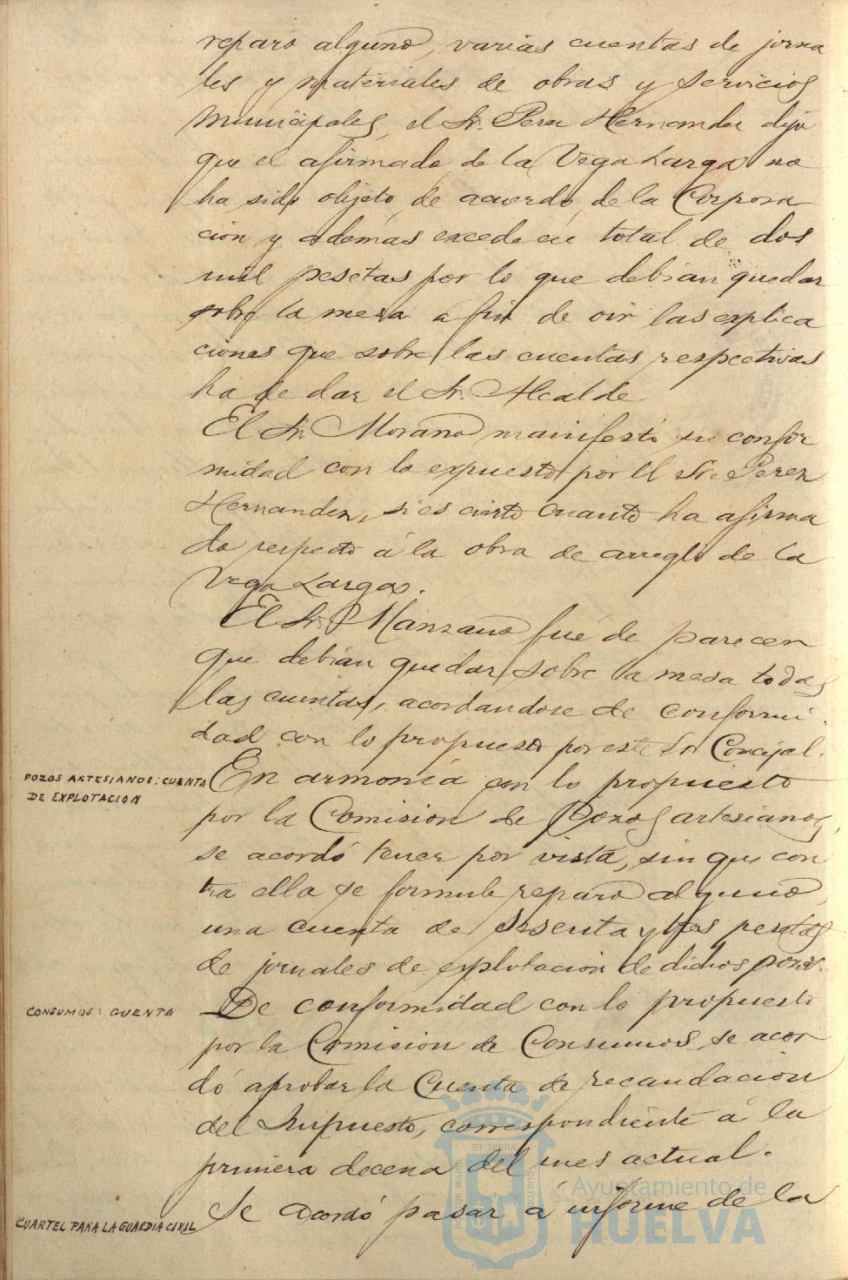 reparo alguno, varias cuentas de jorna
les y materiales de obras y servicios
municipales, el Sr. Perez Hernandez dijo
que el afirmado de la Vega Larga no
ha sido objeto de acuerdo de la Corpora
cion y además excede en total de dos
mil pesetas por lo que debian quedar
sobre la mesa á fin de oir las explica
ciones que sobre las cuentas respectivas
ha de dar el Sr. Alcalde.
El Sr. Morano manifestó su confor
midad con lo expuesto por el Sr. Perez
Hernandez, si es cierto cuanto ha afirma
do respecto á la obra de arreglo de la
Vega Larga.
El Sr. Manzano fué de parecer
que debian quedar sobre la mesa todas
las cuentas, acordandose de conformi
dad con lo propuesto por este Sr. Concejal.
POZOS ARTESIANOS: CUENTA
DE EXPLOTACION
En armonía con lo propuesto
por la Comision de Pozos artesianos,
se acordó tener por vista, sin que con
tra ella se formule reparo alguno,
una cuenta de sesenta y tres pesetas
de jornales de explotacion de dichos pozos.
CONSUMOS: CUENTA
De conformidad con lo propuesto
por la Comision de Consumos, se acor
dó aprobar la Cuenta de recaudacion
del Impuesto, correspondiente á la
primera decena del mes actual.
CUARTEL PARA LA GUARDIA CIVIL
Se acordó pasar a informe de la
Ayuntamiento de
HUELVA